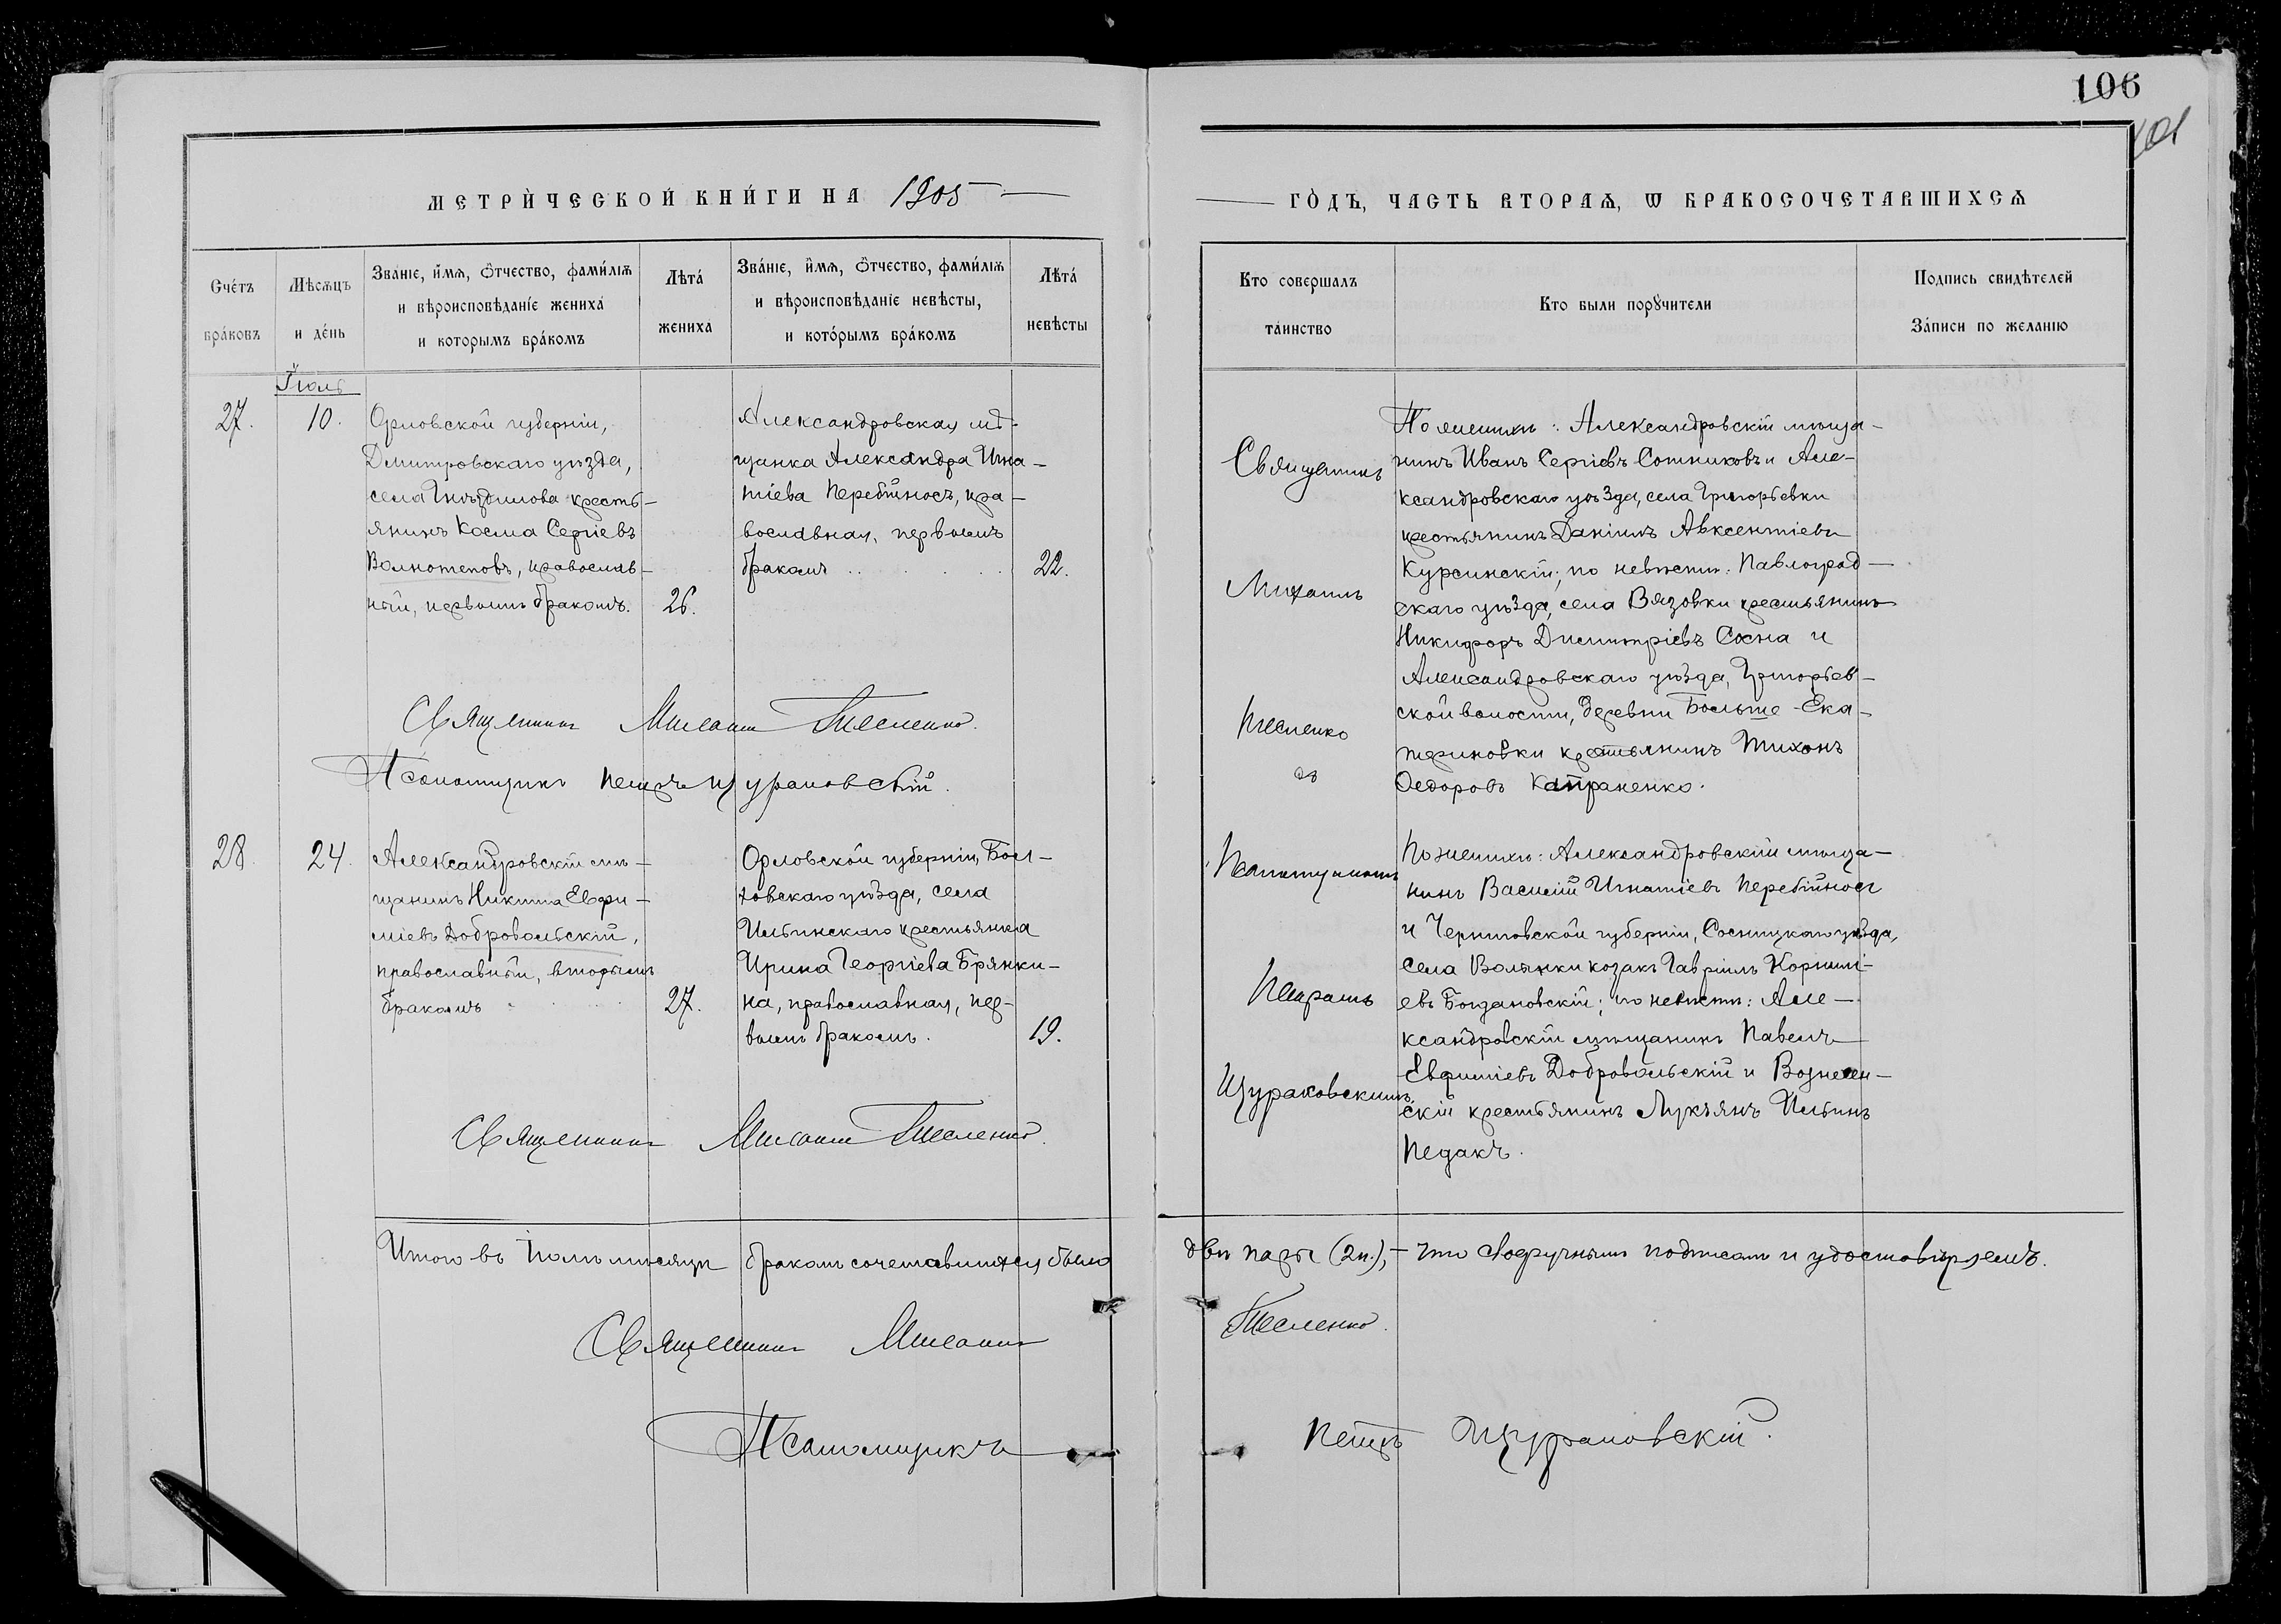 106
101
МЕТРИ́ЧЕСКОЙ КНИ́ГИ НА 1905
ГО́ДЪ, ЧАСТЬ ВТОРАѦ, Ѡ БРАКОСОЧЕТАВШИХСѦ
Сче́тъ бра́ковъ
Мѣ́сѧцъ и де́нь
Зва́нїе, и҆́мѧ, ѻ҆́тчество, фами́лїѧ
и вѣроисповѣ́данїе жениха̀
и которымъ бра́комъ
Лѣта̀ жениха
Зва́нїе, и҆́мѧ, ѻ҆́тчество, фами́лїѧ
и вѣроисповѣ́данїе невѣ́сты,
и кото́рымъ бра́комъ
Лѣта̀ невѣ́сты
Кто совершалъ та́инство
Кто были порꙋчители
Подпись свидѣ́телей
За́писи по желанїю
Іюль
27.
10.
Орловской губерніи,
Дмитровскаго уѣзда,
села Гнѣздилова кресть-
янинъ Косма Сергіевъ
Волнотеповъ, православ-
ный, первымъ бракомъ.
26.
Александровская мѣ-
щанка Александра Игна-
тіева Перебійносъ, пра-
вославная, первымъ
бракомъ
22.
Священникъ
Михаилъ
Тесленко
съ
Псаломщикомъ
Петромъ
Щураковскимъ.
По женихѣ: Александровскій мѣща-
нинъ Иванъ Сергіевъ Сотниковъ и Але-
ксандровскаго уѣзда, села Григорьевки
крестьянинъ Даніилъ Авксентіевъ
Курсинскій; по невѣстѣ: Павлоград-
скаго уѣзда, села Вязовки крестьянинъ
Никифоръ Димитріевъ Сосна и
Александровскаго уѣзда, Григорьев-
ской волости, деревни Больше-Ека-
териновки крестьянинъ Тихонъ
Ѳедоровъ Капраненко.
Священникъ Михаилъ Тесленко.
Псаломщикъ Петръ Щураковскій.
28.
24.
Александровскій мѣ-
щанинъ Никита Евфи-
міевъ Добровольскій,
православный, вторымъ
бракомъ
27.
Орловской губерніи, Бол-
ховскаго уѣзда, села
Ильинскаго крестьянка
Ирина Георгіева Брянки-
на, православная, пер-
вымъ бракомъ.
19.
По женихѣ: Александровскій мѣща-
нинъ Василій Игнатіевъ Перебійносъ
и Черниговской губерніи, Сосницкаго уѣзда,
села Волынки козакъ Гавріилъ Корнилі-
евъ Богдановскій; по невѣстѣ: Але-
ксандровскій мѣщанинъ Павелъ
Евфиміевъ Добровольскій и Вознесен-
скій крестьянинъ Лукъянъ Ильинъ
Педакъ.
Священникъ Михаилъ Тесленко.
Итого въ Іюлѣ мѣсяцѣ бракомъ сочетавшихся было двѣ пары (2 п.), — что своеручнымъ подписомъ и удостовѣряемъ.
Священникъ Михаилъ Тесленко.
Псаломщикъ Петръ Щураковскій.